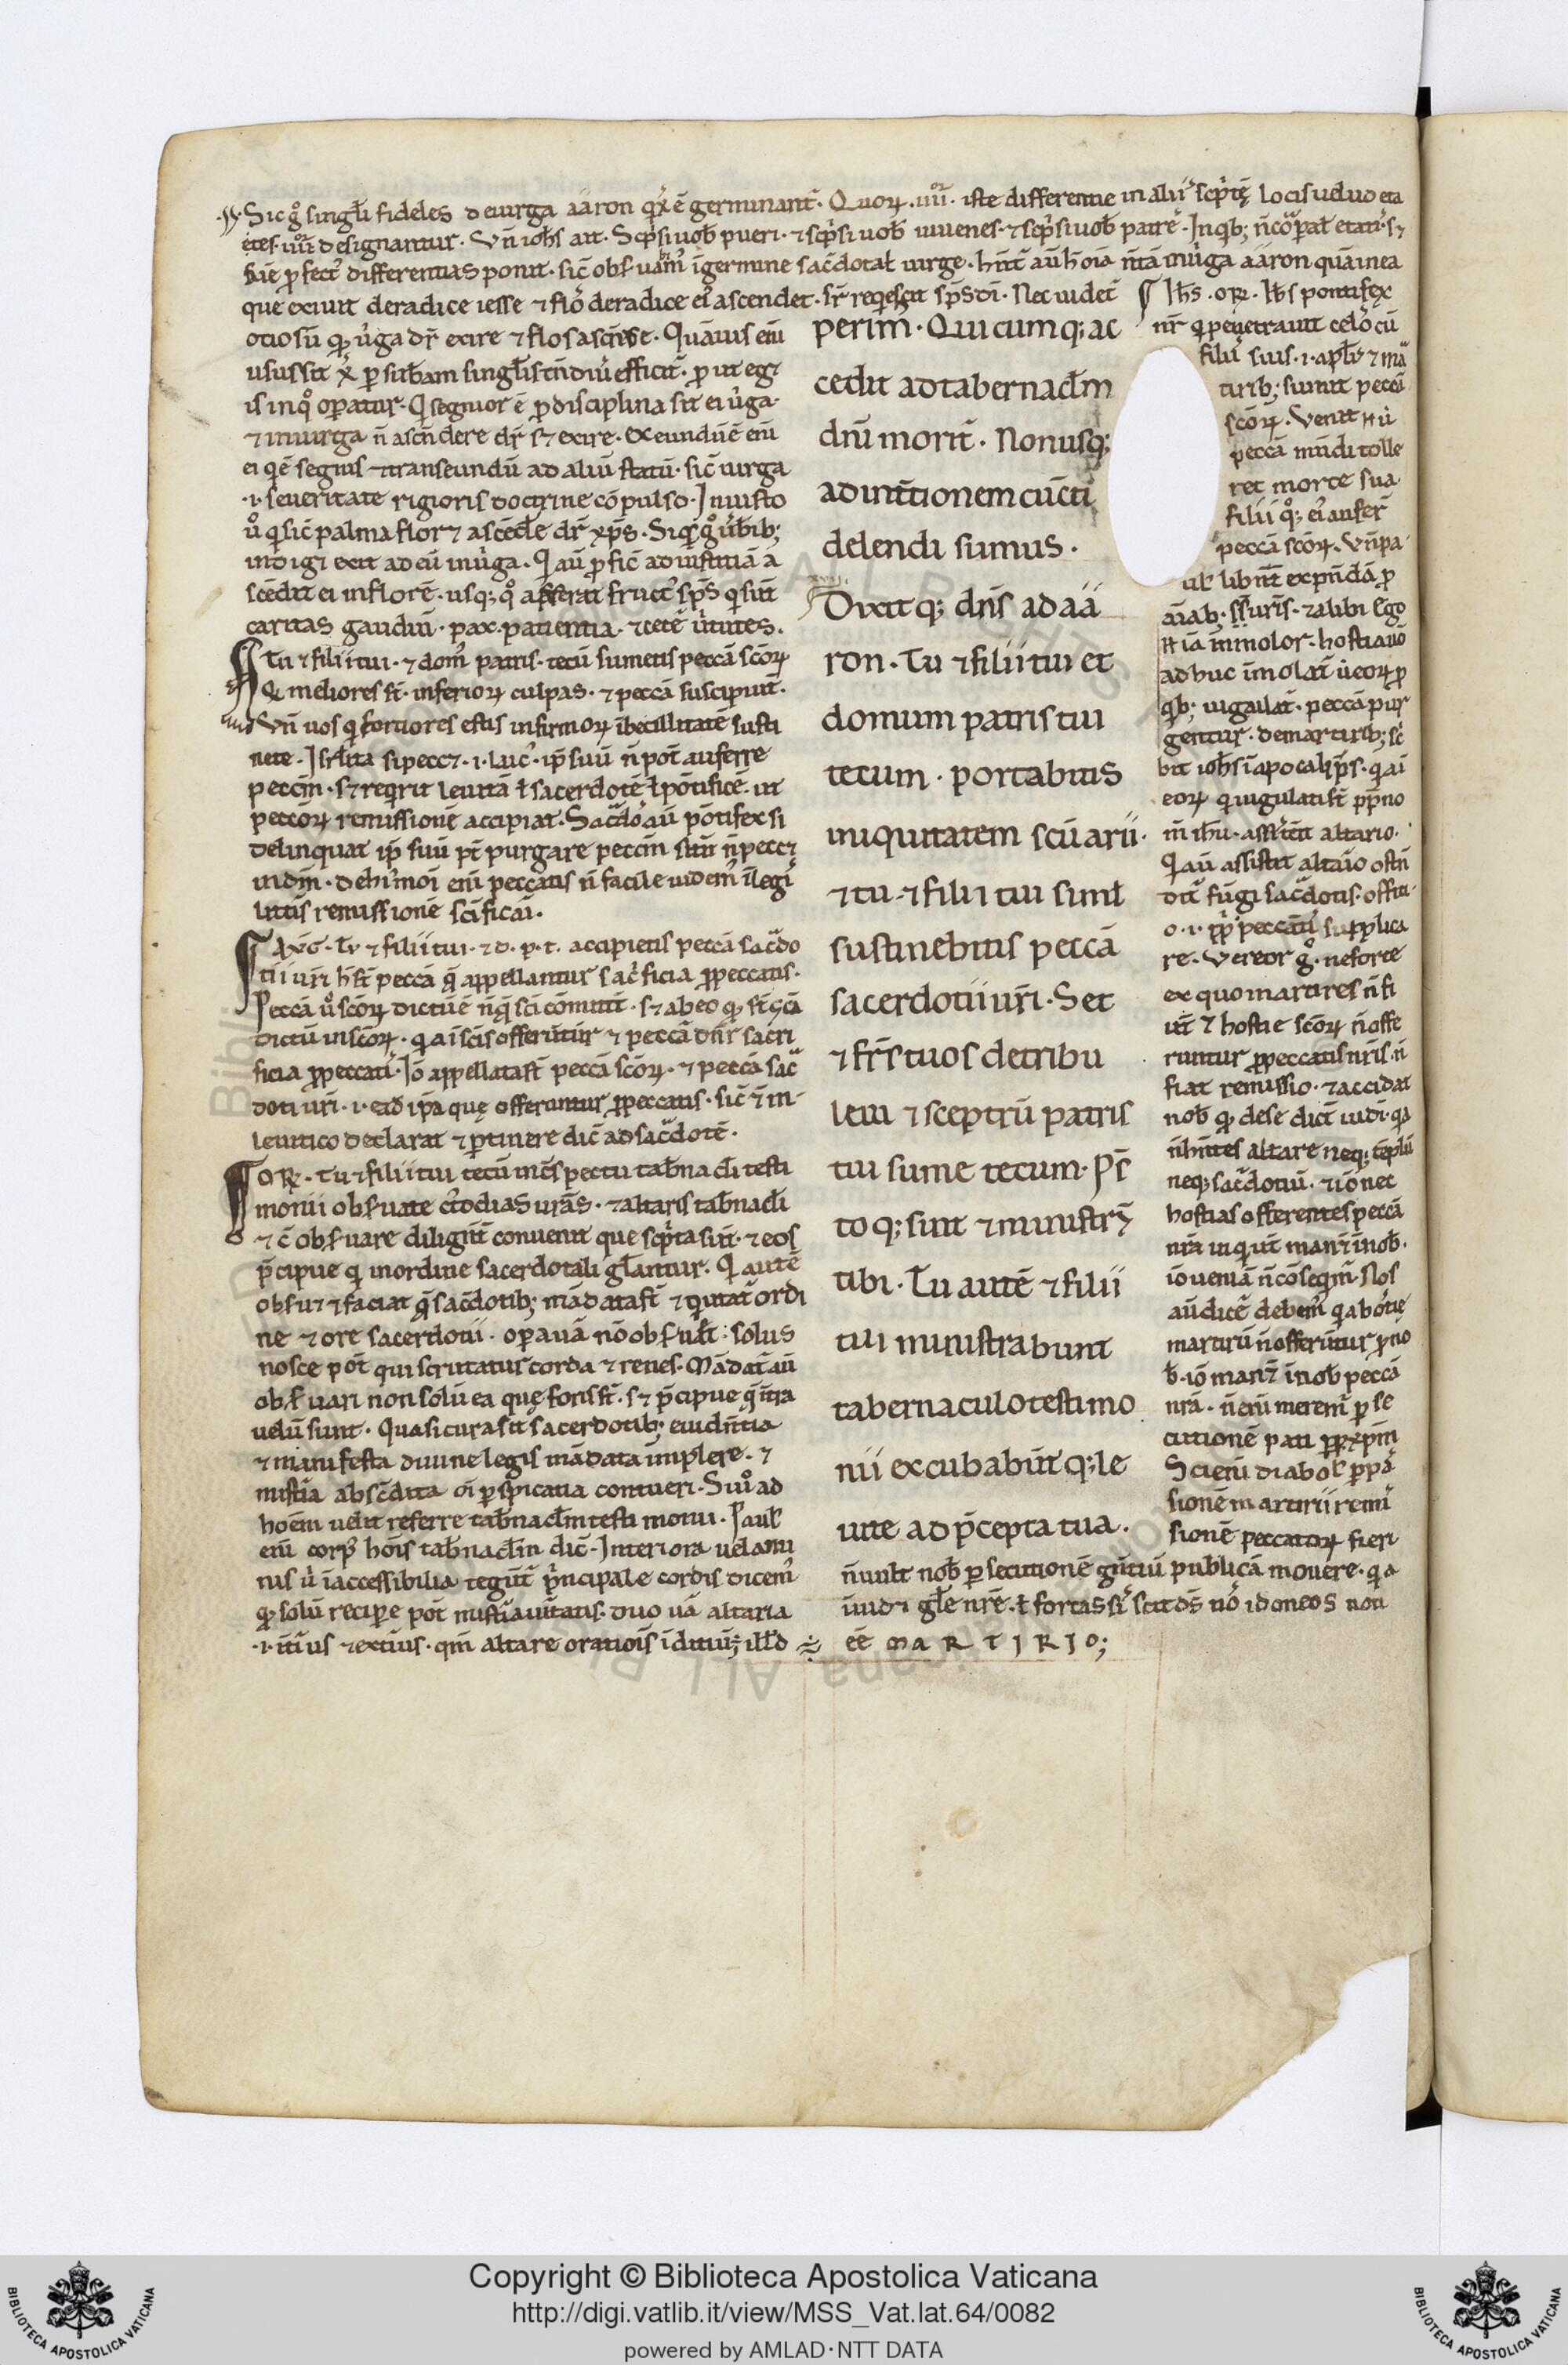 Sic g̊ singl̄i fideles de uirga aaron q̄ xp̄c ē germinant̄. Quoꝝ .iiii. iste differentie in alii scp̄tę locis uelud eta
tes .iiii. designantur. Vn̄ ioh̄s ait. Scp̄si uob̄ pueri. ⁊ scp̄si uob̄ iuuenes. ⁊ scp̄si uob̄ patrē.
que exiuit de radice iesse ⁊ flo᷒ de radice ei᷒ ascendet. sr̄ reqescit sp̄s dī. Nec uidet̄
otiosū qꝫ ủga dr̄ exire ⁊ flos ascendere. Quāuis enī
is in q̊ opatur. Q segnior ē p disciplina fit ei ủga.
⁊ in uirga n̄ ascn̄dere dr̄ sꝫ exire. Exeundū ē enī
ei q ē segnis ⁊ transeundū ad aliū statū. sic̄ uirga
.i. seueritate rigioris doctrine cōpulso. In iusto
ů q sic̄ palma floret ascēdē dr̄ xp̄s.
indiget exit ad eū in ủga. Q aū pfic̄ ad iustitiā a
scēdit ei in florē. usqꝫ q̊ afferat fruct᷒ sp̄s q sunt
caritas gaudiū. pax. patientia. ⁊ cetē ủtutes.
Tu ⁊ filii tui. ⁊ dom᷒ patris. tecū sumetis peccā scōꝝ
Q meliores st̄. inferioꝝ culpas. ⁊ peccā suscipiunt̄.
Vn̄ uos q fortiores estis infirmoꝝ ībecillitatē susti
nete. Isrl̄ita si peccꝫ .i. laic᷒ ip̄ suū n̄ pot̄ auferre
peccm̄. sꝫ reqrit leuitā ł sacerdotē ł pōtificē. ut
peccoꝝ remissionē accipiat. Sac̄do᷒ aū pōtifex si
delinquat ip̄ suū pt̄ purgare peccm̄
leuitis remissionē scificari.
AVG. Tu ⁊ filii tui. ⁊ d. p. t. accipietis peccā sac̄do
tii uri h̄ st̄ peccā q̄ appellantur sac̓ficia p peccatis.
Peccā ů scōꝝ dictū ē
dictū in scōꝝ. q a ī scis offerūtur ⁊ peccā dn̄r sacri
ficia p peccati. Iō appellata st̄ peccā scōꝝ. ⁊ peccā sac̄
dotii uri. .i. ead ip̄a quę offeruntur p peccatis. sic̄ ⁊ in
leuitico declarat ⁊ ptinere dic̄ ad sac̄dotē.
ORꝭ. Tu ⁊ filii tui tecū in cspectu tab̄nacl̄i testi
monii obseruate custodias uras̄. ⁊ altaris tab̄nacl̄i
⁊ c̄ obseruare diligent̄ conuenit que scp̄ta sūt. ⁊ eos
p̄cipue q in ordine sacerdotali gl̄antur. Q autē
obseruꝫ ⁊ faciat q̄ sac̄dotibꝫ mādata st̄ ⁊ q mutat̄ ordi
ne ⁊ ore sacerdotii. opa uā nō obseruat: solus
nosce pot̄ qui scrutatur corda ⁊ renes. Mādat̄ aū
obseruari non solū ea quę foris st̄. sꝫ p̄cipue q̄ ītra
uelū sunt. Quasi cura sit sacerdotibꝫ euidn̄tia
⁊ manifesta diuine legis mādata implere. ⁊
mistīa abscōdita oī pspicatia contueri. Siů ad
hoēm uelit referre tab̄nacl̄m testimonii. Paul᷒
enī corp᷒ hōis tab̄nacl̄m dic̄. Interiora uelami
nis ů inaccessibilia tegūt p̄ncipale cordis dicem᷒
qꝫ solū recipe pot̄ mistīa ueritatis. duo uā altaria
.i. int̄ius ⁊ ext̄ius. qm̄ altare orationis ī diciūꝫ illđ
perim᷒. Quicumqꝫ ac
cedit ad tabernacl̄m
dn̄i morit̄. Nonusqꝫ
ad int̄ntionem cūcti
delendi sumus.
Dixitqꝫ dn̄s ad aa
ron. Tu ⁊ filii tui et
domum patris tui
tecum. portabitis
iniquitatem scūarii.
⁊ tu. ⁊ filii tui siml̄
sustinebitis peccā
sacerdotii uri. Set
⁊ frs̄ tuos de tribu
leui ⁊ sceptrū patris
tui sume tecum. Ps̄
toqꝫ sint ⁊ ministrꝫ
tibi. Tu autē ⁊ filii
tui ministrabunt
tabernaculo testimo
nii excubabūtqꝫ le
uite ad p̄cepta tua.
Ih̄s. ORꝭ. Ih̄s pontifex
nr̄ q penetrauit celo᷒ cū
filii suis .i. apl̄is ⁊ mā
tiribꝫ sumit peccā
scōꝝ. Venit
peccā mūdi tolle
ret morte sua.
filii
peccā scōꝝ. Vn̄ pa
aīabꝫ uris. ⁊ alibi Ego
iā immolor. hostia
adhuc īmolat̄
qbꝫ iugulat̄. peccā pur
gentur. de martiribꝫ sc̓
bit ioh̄s ī apocalip̄s. q aī
eoꝝ q iugulati st̄ pp̄ no
m̄ ih̄u. assistēt altario.
Q aū assistit altario ostn̄
dit̄ fūgi sac̄dotis offiti
o .i. p peccatīs supplica
re. Vereor g̊. ne forte
ex quo martires n̄ fi
ūt ⁊ hostie scōꝝ n̄ offe
runtur p peccatis nris. n̄
fiat remissio. ⁊ accidat
nob̄ qꝫ de se dicūt iudī. q a
n̄ hn̄tes altare neqꝫ tēplū
neqꝫ sac̄dotiū. ⁊ iō nec
hostias offerentes peccā
nrā inquiūt manꝫ in nob̄.
iō ueniā n̄ cōseqm᷒. Nos
aū dicē debem᷒ q a hostię
martirū n̄ offerūtur p no
b̄. iō manꝫ in nob̄ peccā
nrā. n̄ enī merem᷒ pse
cutionē pati pp̄ xp̄m
Scit enī diabol᷒ p pas
sionē martirii remi
sionē peccatoꝝ fieri
n̄ uult nob̄ psecutionē gn̄tiū publicā mouere. q a
inuidꝫ gl̄e nrē. ł fortassis scit ds̄ nō idoneos nos
eē MARTIRIO;
Copyright © Biblioteca Apostolica Vaticana
http://digi.vatlib.it/view/MSS_Vat.lat.64/0082
powered by AMLAD·NTT DATA
BIBLIOTECA APOSTOLICA VATICANA
BIBLIOTECA APOSTOLICA VATICANA